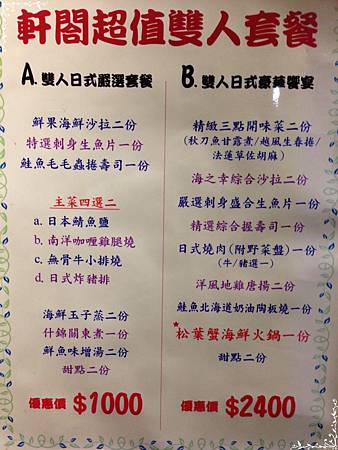 軒閣超值雙人套餐
A. 雙人日式嚴選套餐
鮮果海鮮沙拉二份
特選刺身生魚片一份
鮭魚毛毛蟲捲壽司一份
主菜四選二
a. 日本鯖魚鹽
b. 南洋咖喱雞腿燒
c. 無骨牛小排燒
d. 日式炸豬排
海鮮玉子蒸二份
什錦關東煮一份
鮮魚味增湯二份
甜點二份
優惠價 $1000
B. 雙人日式豪華饗宴
精緻三點開味菜二份
(秋刀魚甘露煮/越風生春捲/
法蓮草佐胡麻)
海之幸綜合沙拉二份
嚴選刺身盛合生魚片一份
精選綜合握壽司一份
日式燒肉(附野菜盤)一份
(牛/豬選一)
洋風地雞唐揚二份
鮭魚北海道奶油陶板燒一份
*松葉蟹海鮮火鍋一份
甜點二份
優惠價 $2400